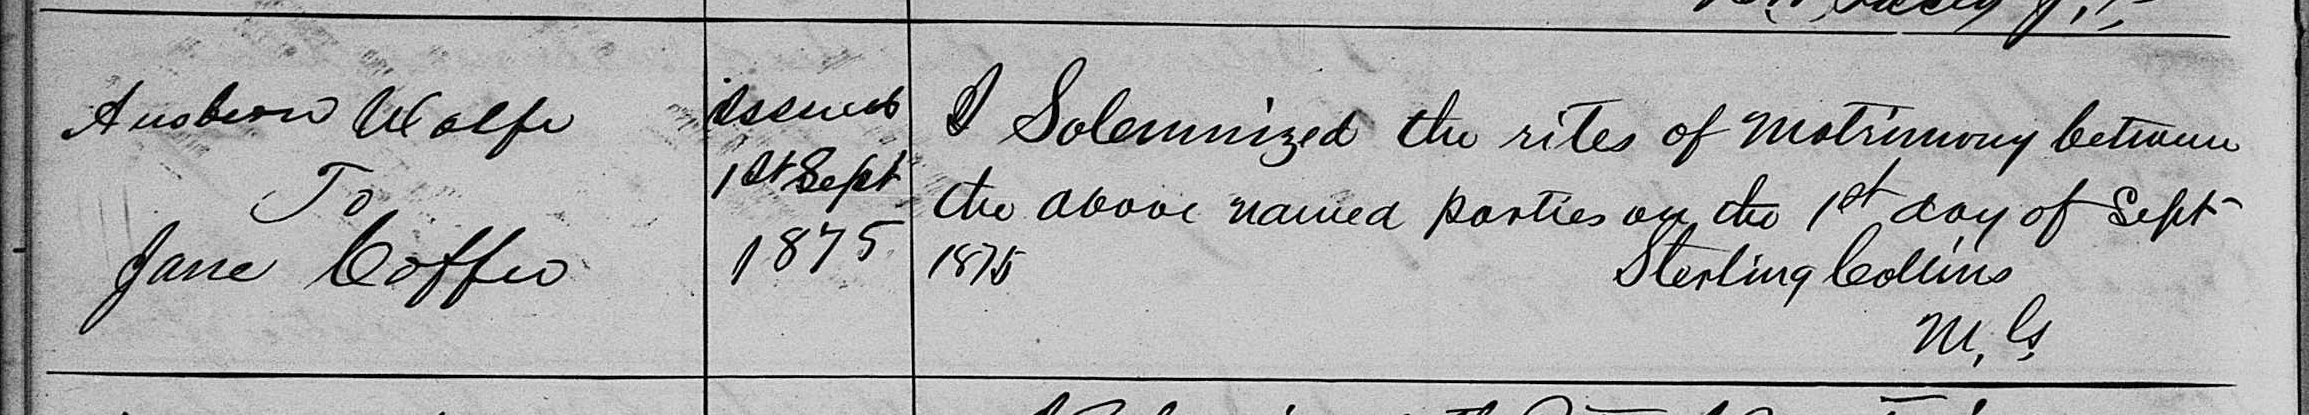 Anderson Wolfe
To
Jane Coffee
Issued
1st Sept
1875
I Solemnized the rites of Matrimony between
the above named parties on the 1st day of Sept
1875
Sterling Collins
M, G,